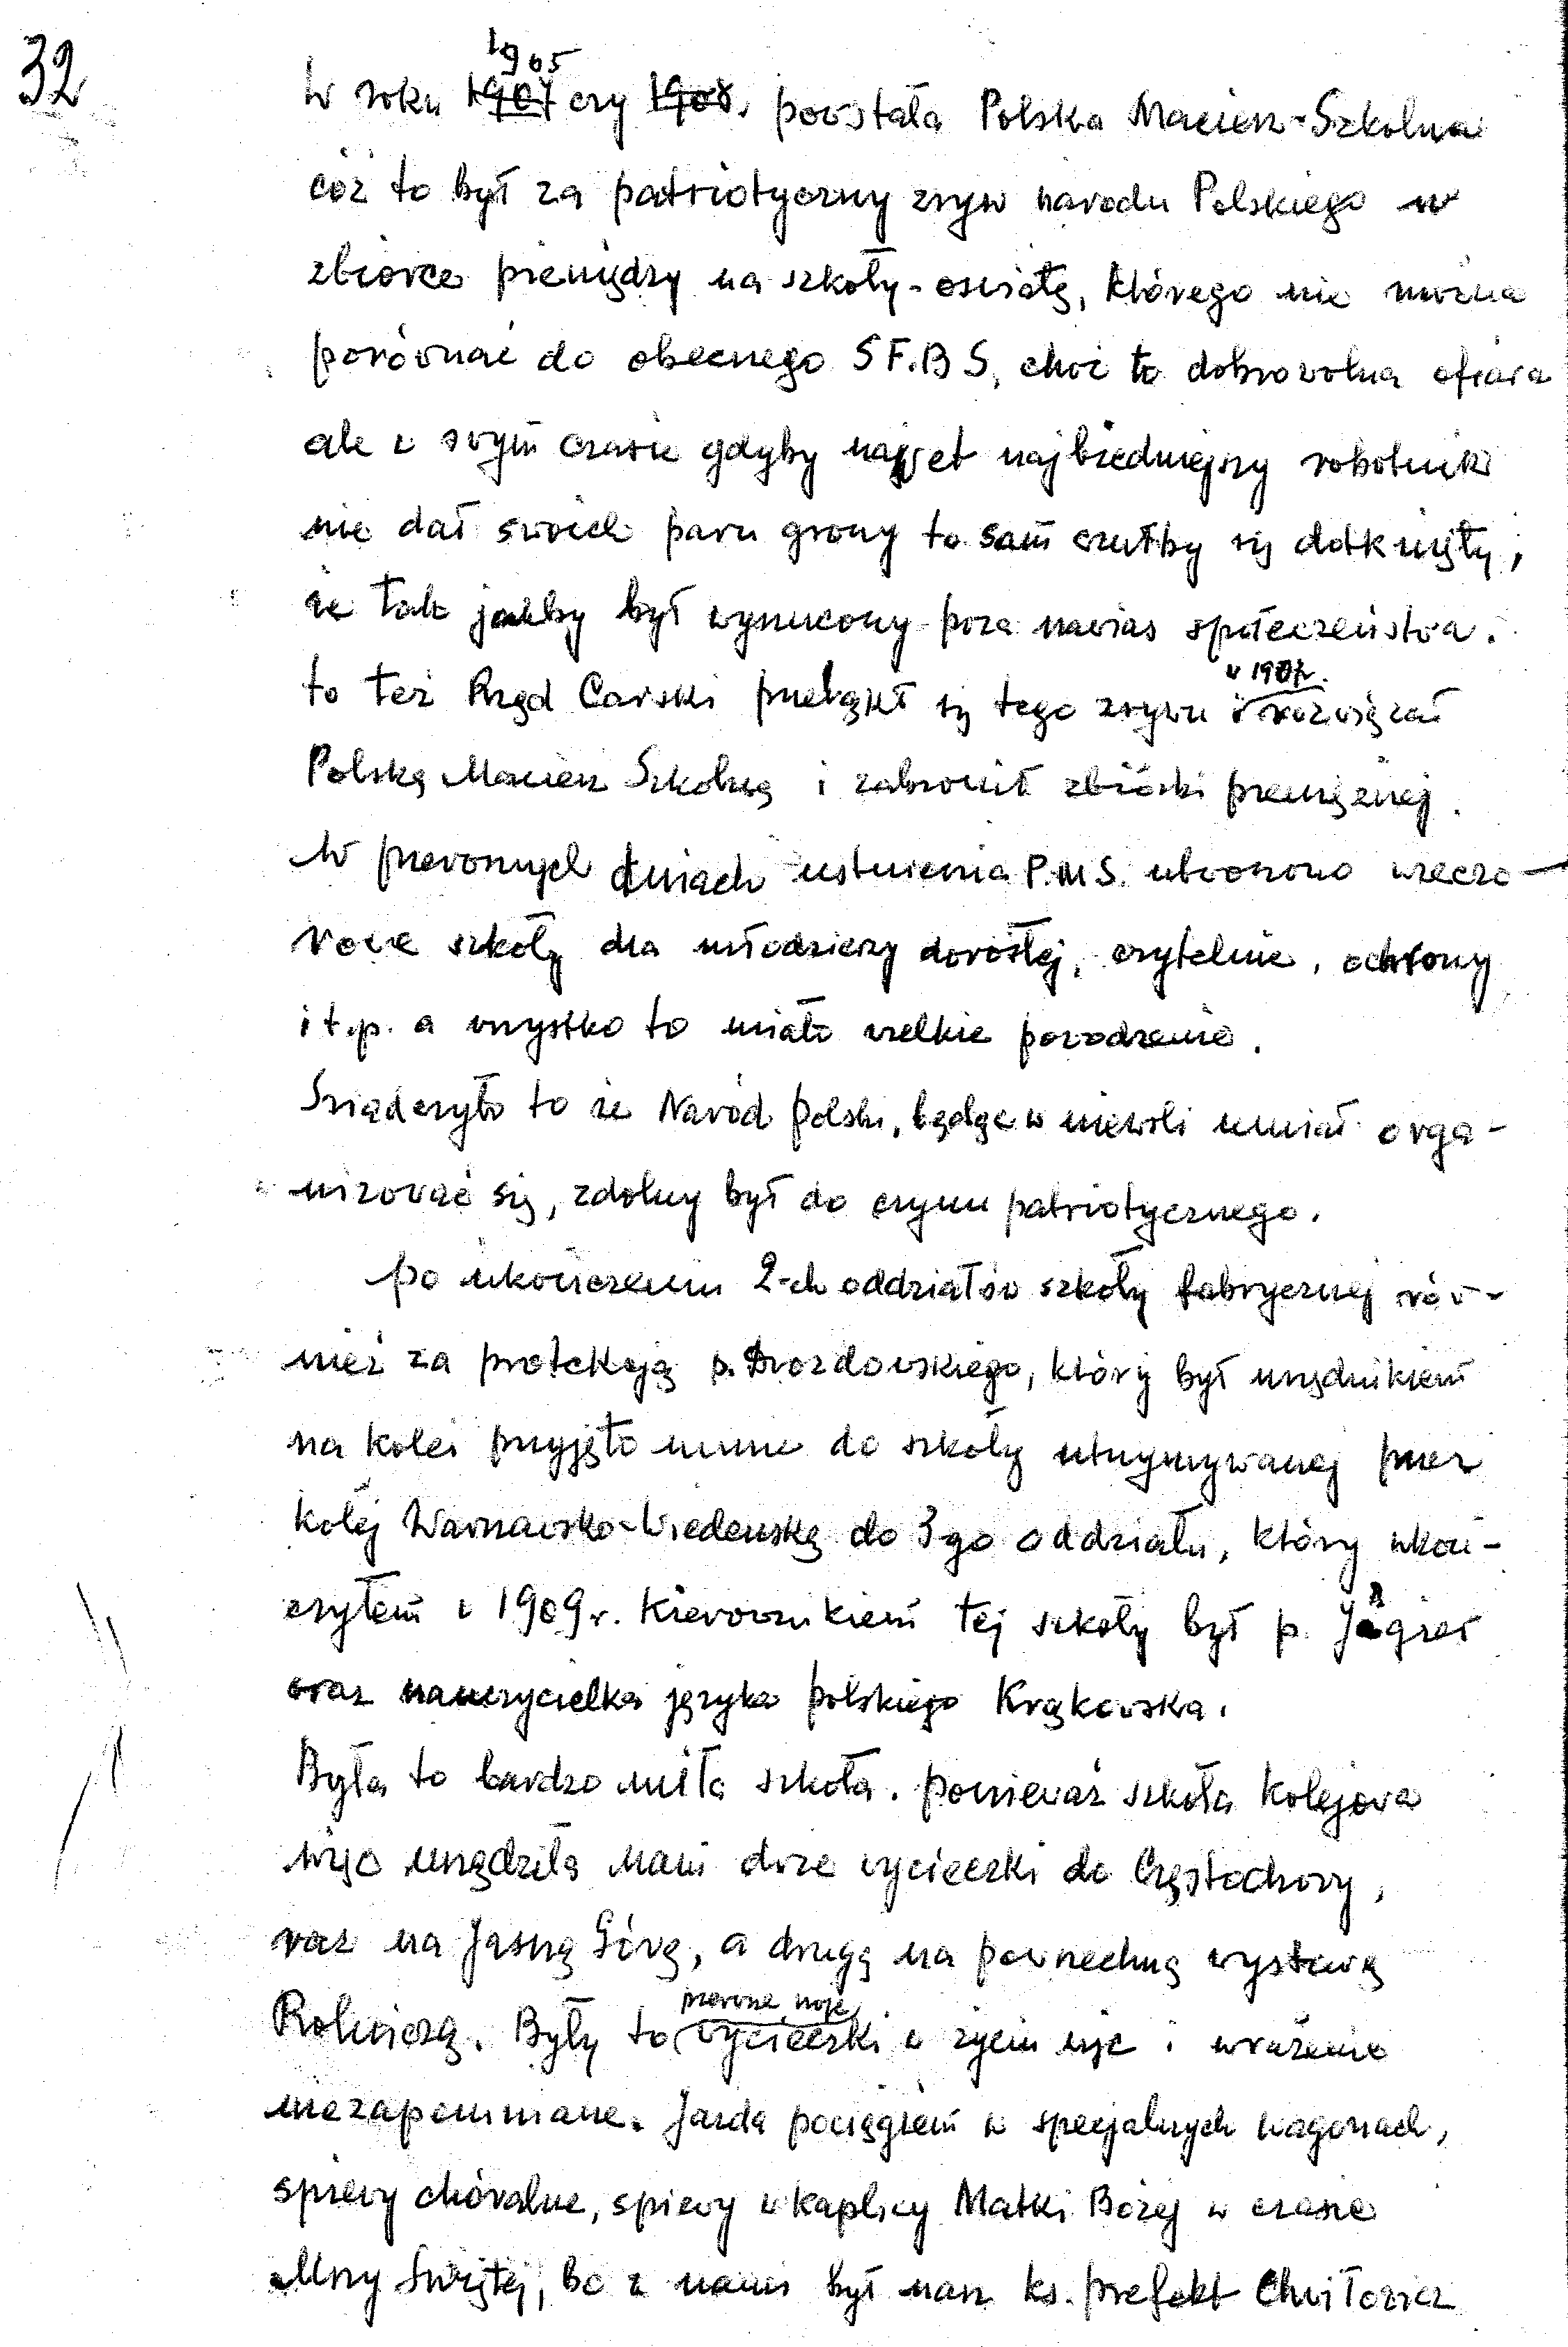 32
1905
W roku 1907 czy 1908, powstała Polska Macierz-Szkolna
cóż to był za patriotyczny zryw narodu Polskiego w
zbiórce pieniędzy na szkoły-oswiatę, którego nie można
porównać do obecnego S F.B S, choć to dobrowolna ofiara
ale w swym czasie gdyby nawet najbiedniejszy robotnik
nie dał swoich paru groszy to sam czułby się dotknięty,
że tak jakby był wyrzucony poza nawias społeczeństwa.
w 1907r.
to też Rząd Carski przeląkł się tego zrywu i rozwiązał
Polską Macierz Szkolną i zabronił zbiórki pieniężnej.
W pierwszych dniach istnienia P.M.S. utworzono wieczo-
rowe szkoły dla młodzieży dorosłej, czytelnie, ochrony
i t.p. a wszystko to miało wielkie powodzenie.
Świadczyło to że Naród polski, będąc w niewoli umiał orga-
nizować się, zdolny był do czynu patriotycznego.
po ukończeniu 2-ch oddziałów szkoły fabrycznej rów-
nież za protekcją p. Drozdowskiego, który był urzędnikiem
na kolei przyjęto mnie do szkoły utrzymywanej przez
kolej Warszawsko-Wiedeńską do 3go oddziału, który ukoń-
czyłem w 1909 r. Kierownikiem tej szkoły był p.
oraz nauczycielka języka polskiego Krąkowska.
Była to bardzo miła szkoła. ponieważ szkoła kolejowa
więc urządziła nam dwie wycieczki do Częstochowy,
raz na Jasną Górę, a drugą na powszechną wystawę
pierwsze moje
Rolniczą. Były to wycieczki w życiu więc i wrażenie
niezapomniane. Jazda pociągiem w specjalnych wagonach,
śpiewy chóralne, spiewy w kaplicy Matki Bożej w czasie
Mszy Świętej, bo z nami był nasz ks. prefekt Chwiłowicz